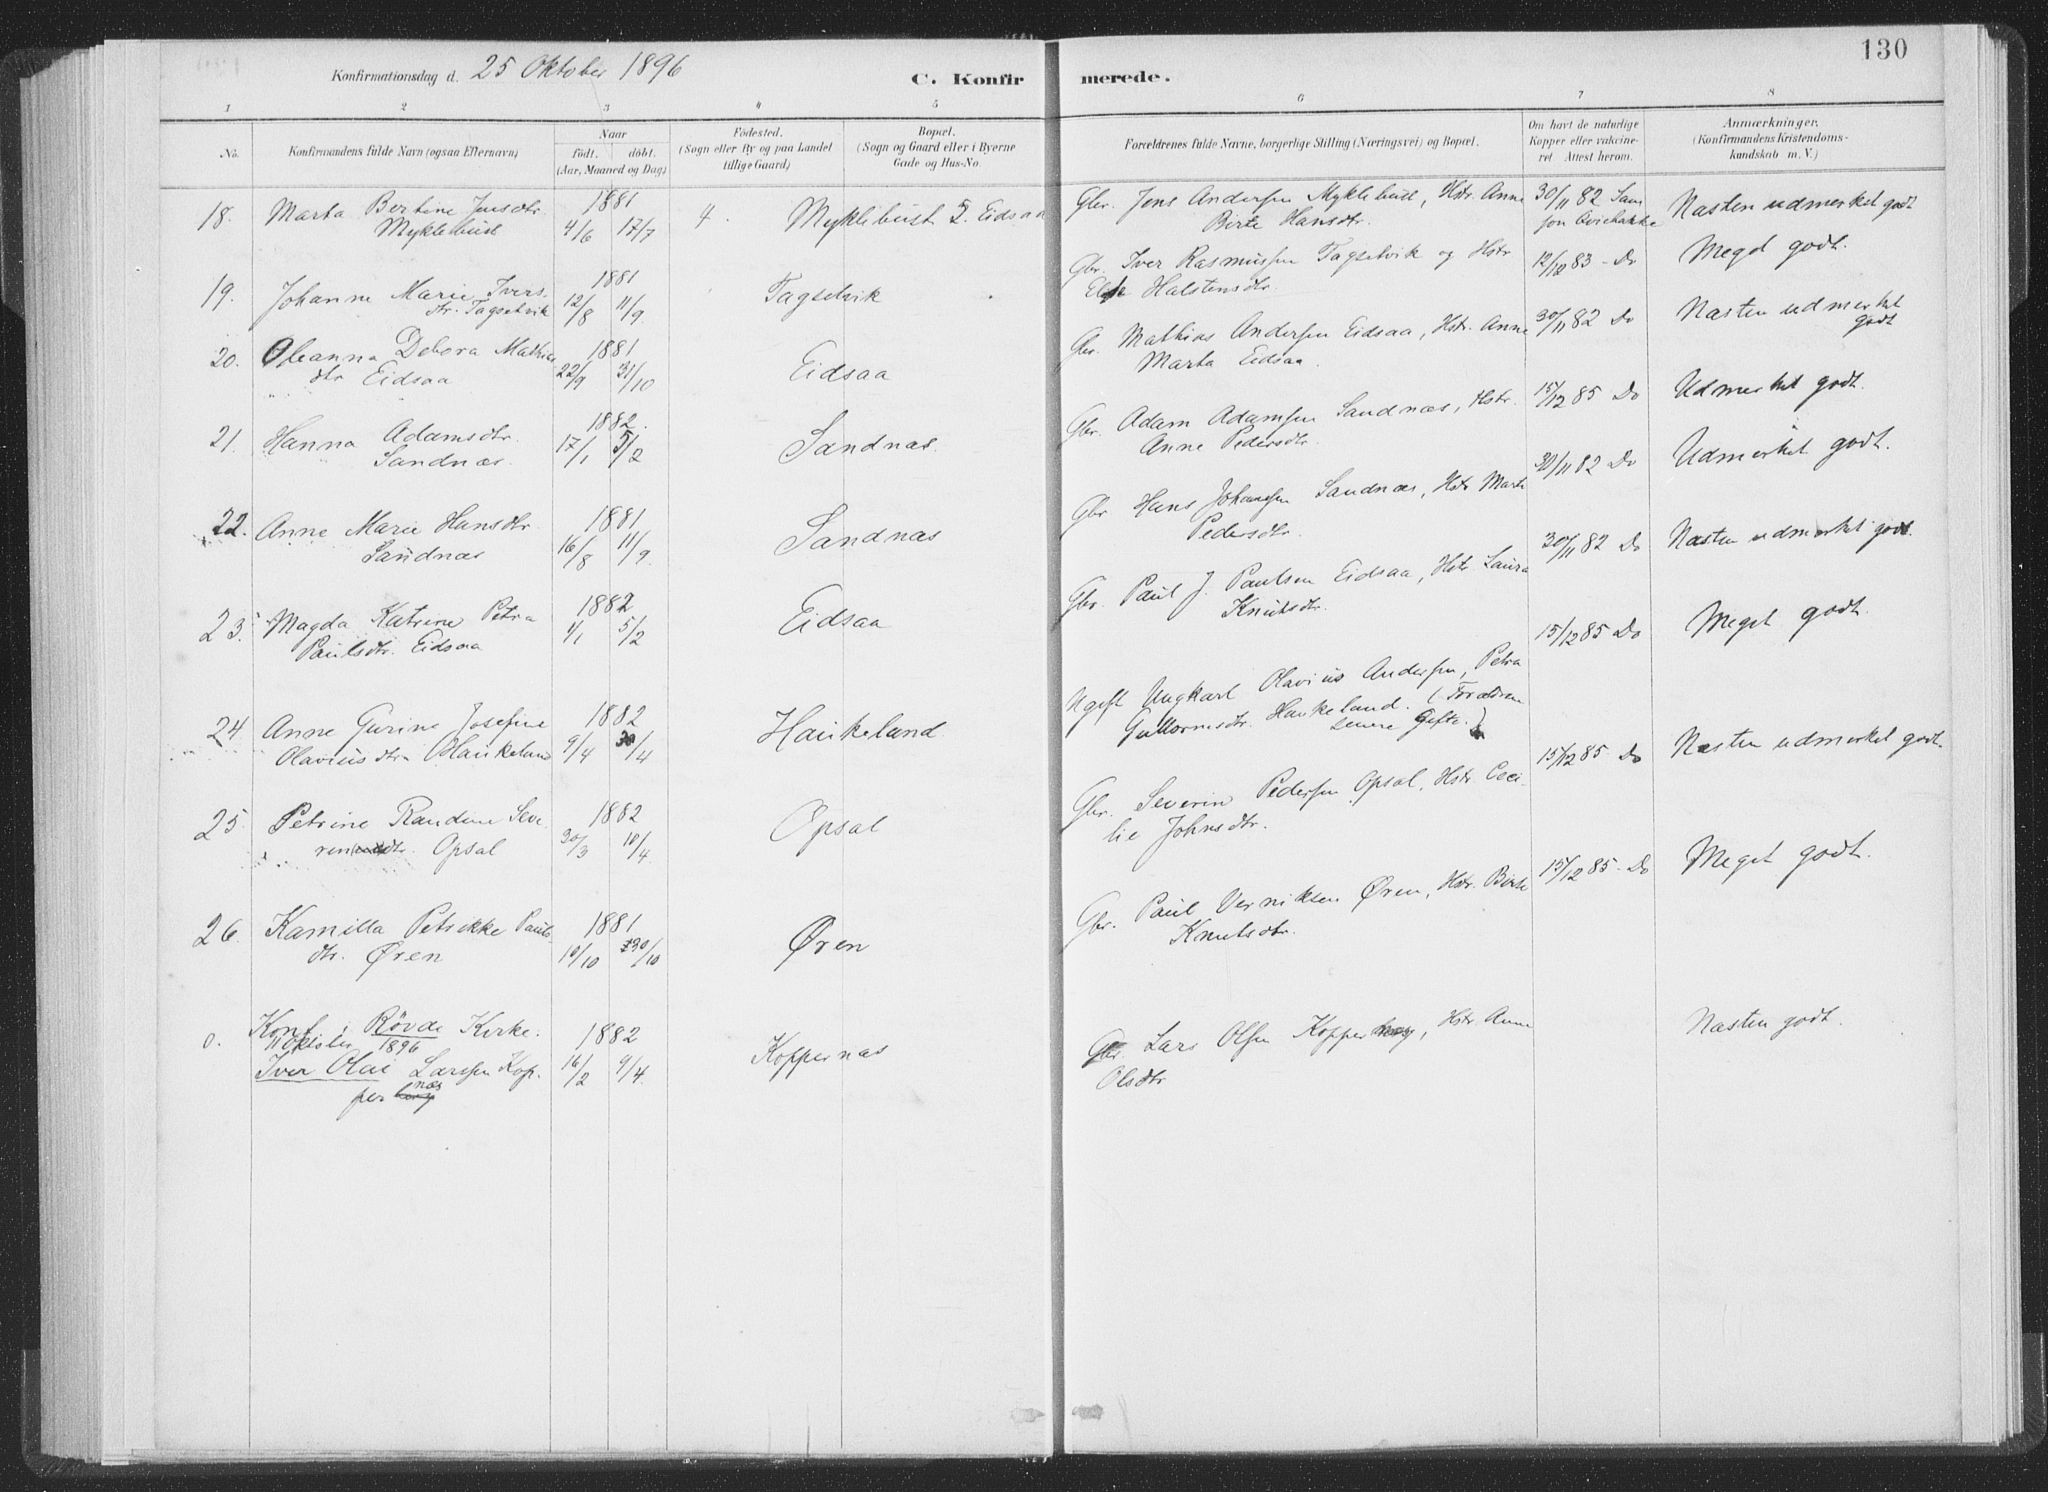 130
Konfirmationsdag d. 25 Oktober 1896
C. Konfirmerede.
1 2 3 4 5 6 7 8
No.
Konfirmandens fulde Navn (ogsaa Efternavn)
Naar
født. døbt.
(Aar, Maaned og Dag)
Fødested.
(Sogn eller By og paa Landet
tillige Gaard)
Bopæl.
(Sogn og Gaard eller i Byerne
Gade og Hus-No.
Forældrenes fulde Navne, borgerlige Stilling (Næringsvei) og Bopæl.
Om havt de naturlige
Kopper eller vakcine-
ret. Attest herom.
Anmærkninger.
(Konfirmandens Kristendoms-
kundskab m. V.)
18. Marta Bertine Jensdtr. 1881
Myklebust 4/6 17/7 4. Myklebust I. Eidsaa
Gbr. Jens Andersen Myklebust, Hstr. Anne 30/11 82 Sam
Birte Hansdtr. son Aviebakke Næsten udmerket godt
19. Johanne Marie Ivers- 1881
dtr. Tagsetvik 12/8 11/9. Tagsetvik
Gbr. Iver Rasmussen Tagsetvik og Hstr 12/12 83 - Do Meget godt.
Halstensdtr.
20. Oleanna Debora Mathias 1881
dtr Eidsaa 22/9 31/10 Eidsaa
Gbr. Mathias Andersen Eidsaa, Hstr. Anne 30/11 82 Do Næsten udmerket
Marta Eidsaa. godt
21. Hanna Adamsdtr. 1882.
Sandnæs. 17/1 5/2 Sandnæs.
Gbr. Adam Adamsen Sandnæs, Hstr. 15/12 85 Do Udmerket godt.
Anne Pedersdtr.
22. Anne Marie Hansdtr. 1881
Sandnæs 16/8 11/9. Sandnæs
Gbr Hans Johansen Sandnæs, Hstr Marte 30/11 82 Do Udmerket godt.
Pedersdtr.
23. Magda Katrine Petra 1882
Paulsdtr. Eidsaa 4/1 5/2 Eidsaa
Gbr. Paul J. Paulsen Eidsaa, Hstr. Laura 30/11 82 Do Næsten udmerket godt.
Knutsdtr.
24. Anne Gurine Josefine 1882
Olaviusdtr. Haukeland 9/4 30/4 Haukeland
Ugift Ungkarl Olavius Andersen, Petra 15/12 85 Do Meget godt.
Guttormsdtr. Haukeland. (Forældrene
senere Gifte.)
25. Petrine Randine Seve 1882
rensdtr. Opsal 30/3 10/4. Opsal
Gbr. Severin Pedersen Opsal, Hstr. Ceci 15/12 85 Do Næsten udmerket godt.
lie Johnsdtr.
26. Kamilla Petrikke Pauls 1881
dtr. Øren 10/10 30/10 Øren
Gbr. Paul Verniksen Øren, Hstr. Birte 15/12 85 - Do Meget godt.
Knutsdtr.
0. Konf. i Røvde Kirke. 1882
11 Oktober 1896
Iver Olai Larssen Kop- 16/2 9/4. Koppernæs
pernæs
Gbr. Lars Olsen Kopper, Hstr. Anne Næsten godt.
Olsdtr